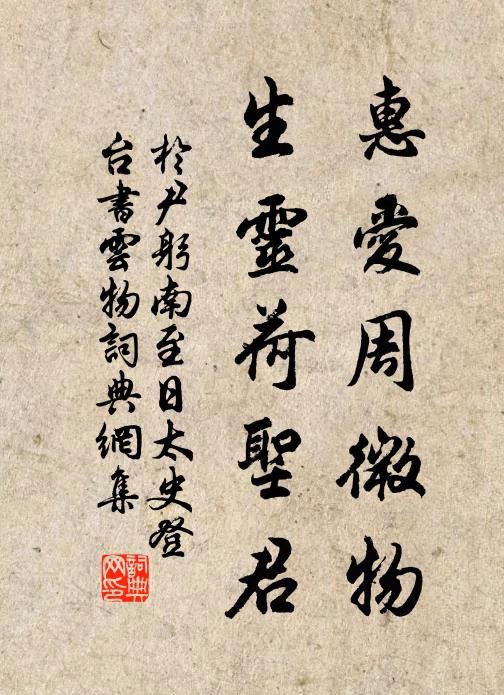 惠愛周微物
生靈荷聖君
於尹躬南至日太史登
台書雲物詞典網集
詞典
网印